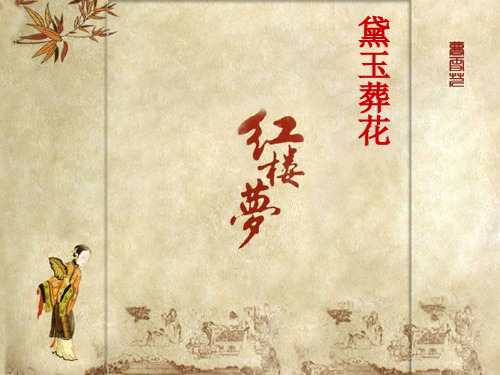 黛玉葬花
红楼夢